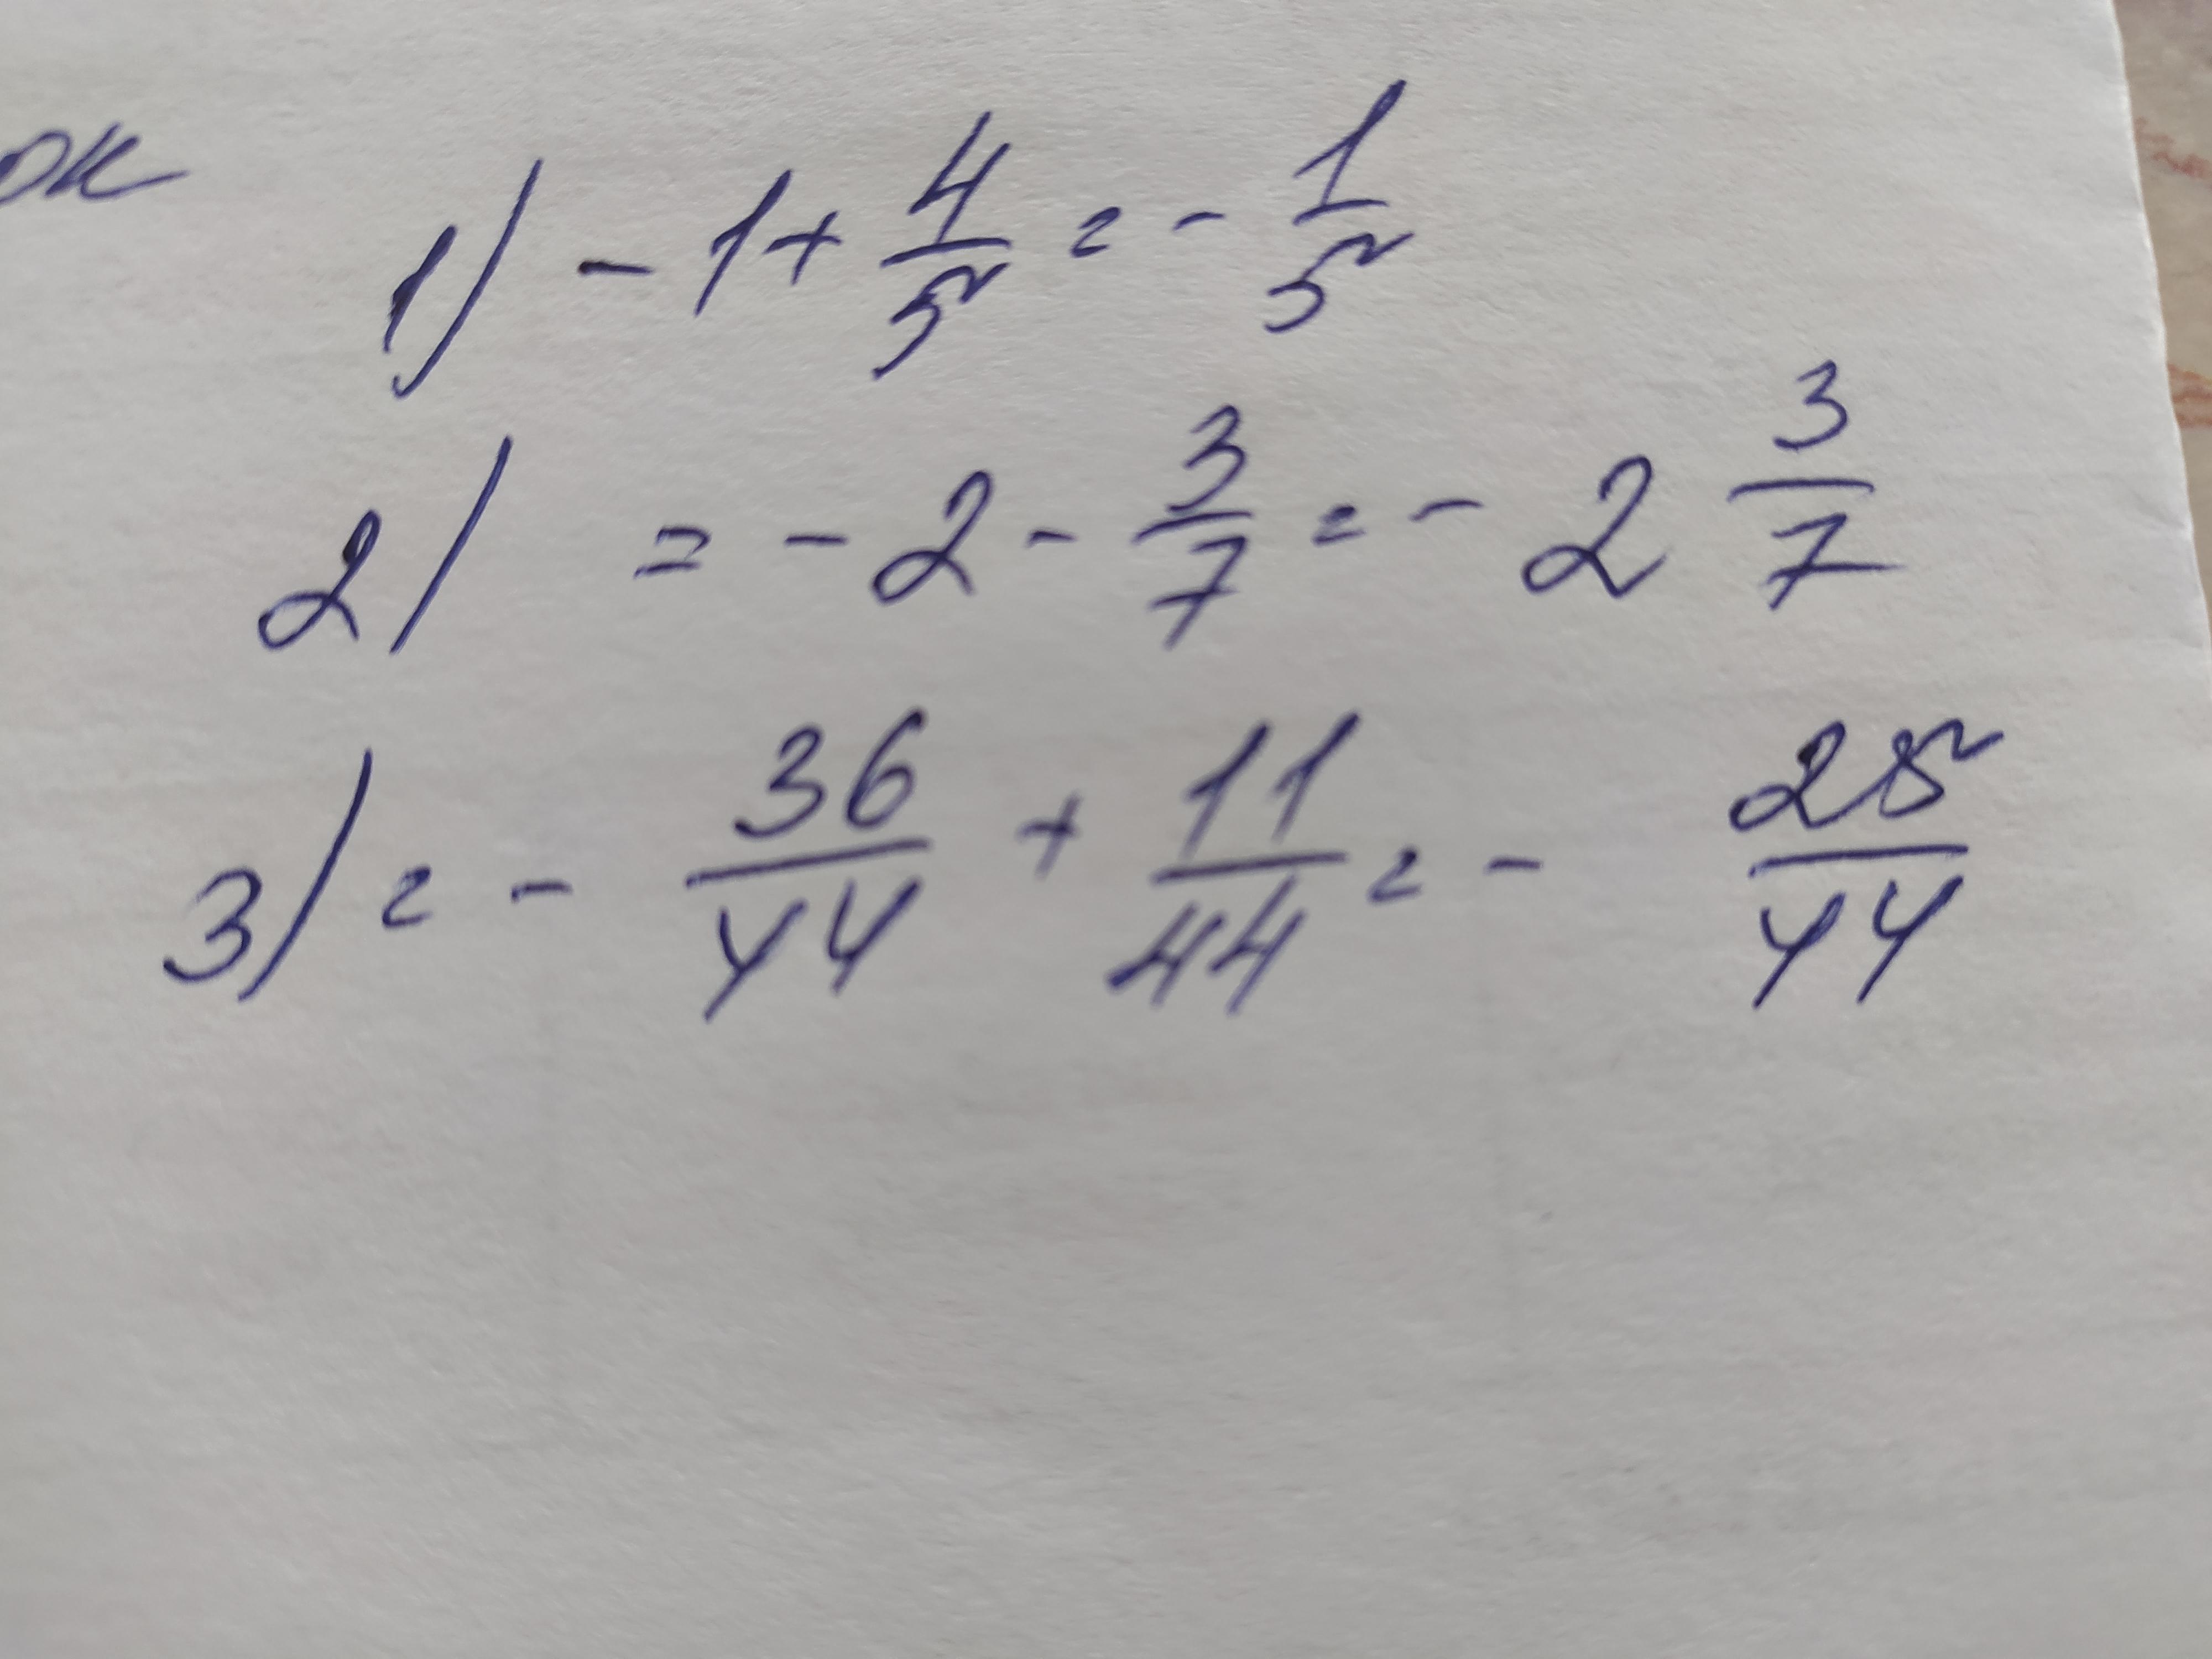 ок
1) - 1 + 4/5 = - 1/5
2) = - 2 - 3/7 = - 2 3/7
3) = - 36/44 + 11/44 = - 25/44